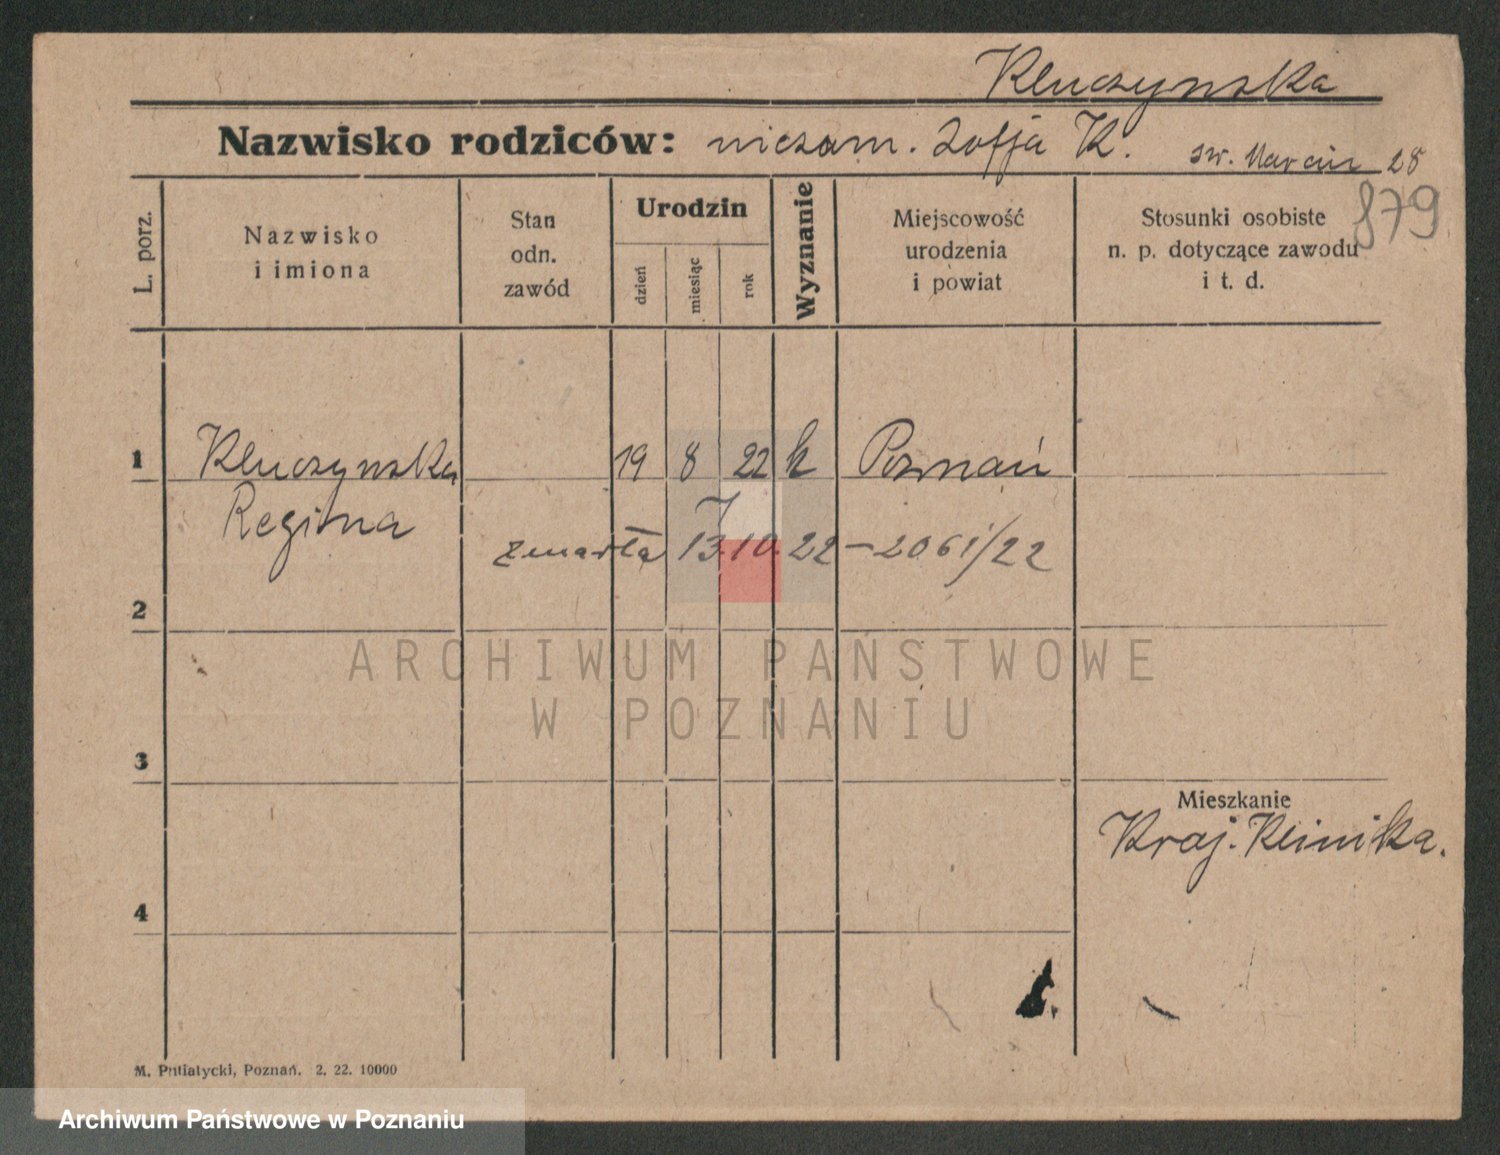 Kluczynska
Nazwisko rodziców: niezam. Zofja K. św. Marcin 28
879
L. porz.
Nazwisko
i imiona
Stan
odn.
zawód
Urodzin
dzień
miesiąc
rok
Wyznanie
Miejscowość
urodzenia
i powiat
Stosunki osobiste
n. p. dotyczące zawodu
i t. d.
1 Kluczynska 19 8 22 k Poznań
Regina
zmarła 13.10.22 – 2061/22
2
3
4
Mieszkanie
Kraj. Klinika.
M. Putiatycki, Poznań. 2. 22. 10000
ARCHIWUM PAŃSTWOWE
W POZNANIU
Archiwum Państwowe w Poznaniu